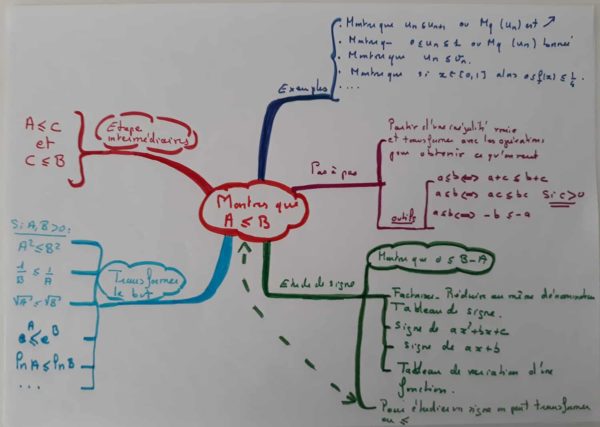 Montrer que
A ≤ B
Exemples
. Montrer que un ≤ un+1 ou Mq (un) est ↗
. Montrer que 0 ≤ un ≤ 1 ou Mq (un) bornée
. Montrer que un ≤ vn.
. Montrer que si x ∈ [0,1] alors 0 ≤ f(x) ≤ 1/4
. ...
Pas à pas
Partir d'une inégalité vraie
et transformer avec les opérations
pour obtenir ce qu'on veut
outils
a≤b ⟺ a+c ≤ b+c
a≤b ⟺ ac ≤ bc Si c>0
a≤b ⟺ -b ≤ -a
Etude de signe
Montrer que 0 ≤ B-A
Factoriser - Réduire au même dénominateur
Tableau de signe.
signe de ax²+bx+c
signe de ax+b
Tableau de variation d'une
fonction.
Pour étudier un signe on peut transformer
en ≤
Etape
intermédiaires
A ≤ C
et
C ≤ B
Transformer
le but
Si A, B > 0 :
A² ≤ B²
1/B ≤ 1/A
√A ≤ √B
e^A ≤ e^B
ln A ≤ ln B
...